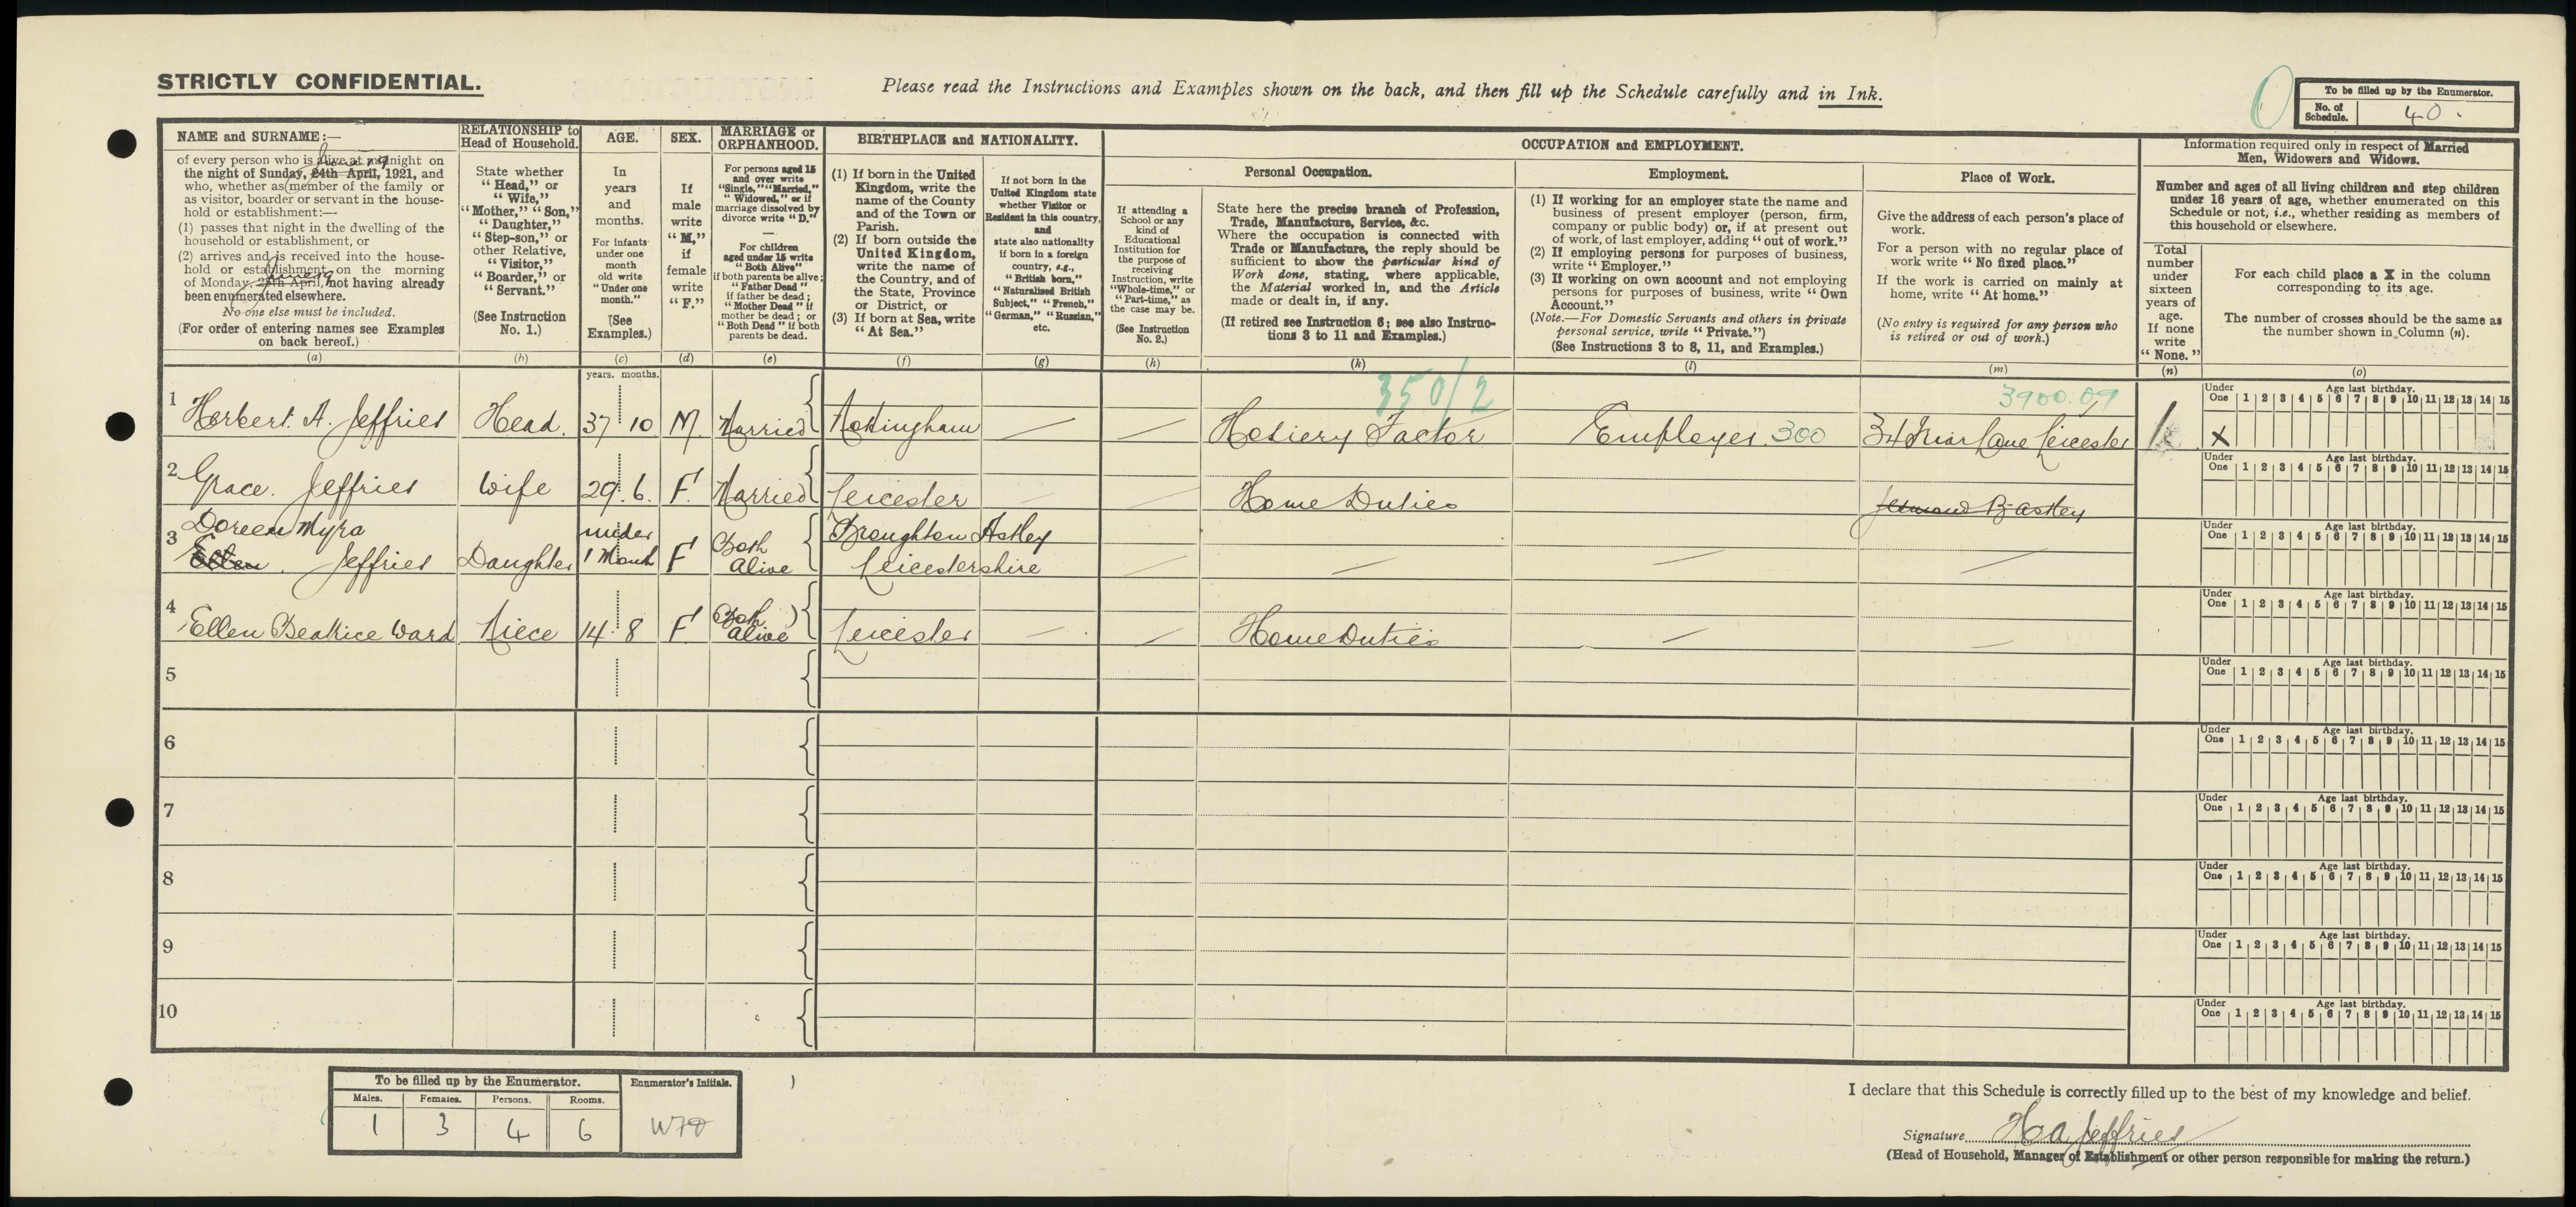 STRICTLY CONFIDENTIAL.
Please read the Instructions and Examples shown on the back, and then fill up the Schedule carefully and in Ink.
To be filled up by the Enumerator.
No. of Schedule. 40.
NAME and SURNAME:—
of every person who is alive at midnight on
the night of Sunday, 24th April, 1921, and
who, whether as member of the family or
as visitor, boarder or servant in the house-
hold or establishment:—
(1) passes that night in the dwelling of the
household or establishment, or
(2) arrives and is received into the house-
hold or establishment on the morning
of Monday, 25th April, not having already
been enumerated elsewhere.
No one else must be included.
(For order of entering names see Examples
on back hereof.)
(a)
RELATIONSHIP to
Head of Household.
State whether
"Head," or
"Wife,"
"Mother," "Son,"
"Daughter,"
"Step-son," or
other Relative,
"Visitor,"
"Boarder," or
"Servant."
(See Instruction
No. 1.)
(b)
AGE.
In
years
and
months.
For infants
under one
month
old write
"Under one
month."
(See
Examples.)
(c)
SEX.
If
male
write
"M,"
if
female
write
"F."
(d)
MARRIAGE or
ORPHANHOOD.
For persons aged 15
and over write
"Single," "Married,"
"Widowed," or if
marriage dissolved by
divorce write "D."
—
For children
aged under 15 write
"Both Alive"
if both parents be alive;
"Father Dead"
if father be dead;
"Mother Dead" if
mother be dead; or
"Both Dead" if both
parents be dead.
(e)
BIRTHPLACE and NATIONALITY.
(1) If born in the United
Kingdom, write the
name of the County
and of the Town or
Parish.
(2) If born outside the
United Kingdom,
write the name of
the Country, and of
the State, Province
or District, or
(3) If born at Sea, write
"At Sea."
(f)
If not born in the
United Kingdom state
whether Visitor or
Resident in this country,
and
state also nationality
if born in a foreign
country, e.g.,
"British born,"
"Naturalised British
Subject," "French,"
"German," "Russian,"
etc.
(g)
OCCUPATION and EMPLOYMENT.
If attending a
School or any
kind of
Educational
Institution for
the purpose of
receiving
Instruction, write
"Whole-time," or
"Part-time," as
the case may be.
(See Instruction
No. 2.)
(h)
Personal Occupation.
State here the precise branch of Profession,
Trade, Manufacture, Service, &c.
Where the occupation is connected with
Trade or Manufacture, the reply should be
sufficient to show the particular kind of
Work done, stating, where applicable,
the Material worked in, and the Article
made or dealt in, if any.
(If retired see Instruction 6; see also Instruc-
tions 3 to 11 and Examples.)
(k)
Employment.
(1) If working for an employer state the name and
business of present employer (person, firm,
company or public body) or, if at present out
of work, of last employer, adding "out of work."
(2) If employing persons for purposes of business,
write "Employer."
(3) If working on own account and not employing
persons for purposes of business, write "Own
Account."
(Note.—For Domestic Servants and others in private
personal service, write "Private.")
(See Instructions 3 to 8, 11, and Examples.)
(l)
Place of Work.
Give the address of each person's place of
work.
For a person with no regular place of
work write "No fixed place."
If the work is carried on mainly at
home, write "At home."
(No entry is required for any person who
is retired or out of work.)
(m)
Information required only in respect of Married
Men, Widowers and Widows.
Number and ages of all living children and step children
under 16 years of age, whether enumerated on this
Schedule or not, i.e., whether residing as members of
this household or elsewhere.
Total
number
under
sixteen
years of
age.
If none
write
"None."
(n)
For each child place a X in the column
corresponding to its age.
The number of crosses should be the same as
the number shown in Column (n).
(o)
years. months.
350/2
3900.09
1 Herbert. A. Jeffries Head. 37 10 M. Married Nottingham — — Hosiery Factor Employer 300 34 Friar Lane Leicester 1 X
Under One Age last birthday. 1 2 3 4 5 6 7 8 9 10 11 12 13 14 15
2 Grace. Jeffries Wife 29. 6. F. Married Leicester Home Duties
Under One Age last birthday. 1 2 3 4 5 6 7 8 9 10 11 12 13 14 15
3 Doreen Myra under Broughton Astley
Ellen. Jeffries Daughter 1 Month F Both Alive Leicestershire — — — —
Under One Age last birthday. 1 2 3 4 5 6 7 8 9 10 11 12 13 14 15
4 Ellen Beatrice Ward Niece 14. 8 F Both Alive Leicester — — Home Duties — —
Under One Age last birthday. 1 2 3 4 5 6 7 8 9 10 11 12 13 14 15
5 Under One Age last birthday. 1 2 3 4 5 6 7 8 9 10 11 12 13 14 15
6 Under One Age last birthday. 1 2 3 4 5 6 7 8 9 10 11 12 13 14 15
7 Under One Age last birthday. 1 2 3 4 5 6 7 8 9 10 11 12 13 14 15
8 Under One Age last birthday. 1 2 3 4 5 6 7 8 9 10 11 12 13 14 15
9 Under One Age last birthday. 1 2 3 4 5 6 7 8 9 10 11 12 13 14 15
10 Under One Age last birthday. 1 2 3 4 5 6 7 8 9 10 11 12 13 14 15
To be filled up by the Enumerator. Enumerator's Initials.
Males. Females. Persons. Rooms.
1 3 4 6
I declare that this Schedule is correctly filled up to the best of my knowledge and belief.
Signature H A Jeffries
(Head of Household, Manager of Establishment or other person responsible for making the return.)